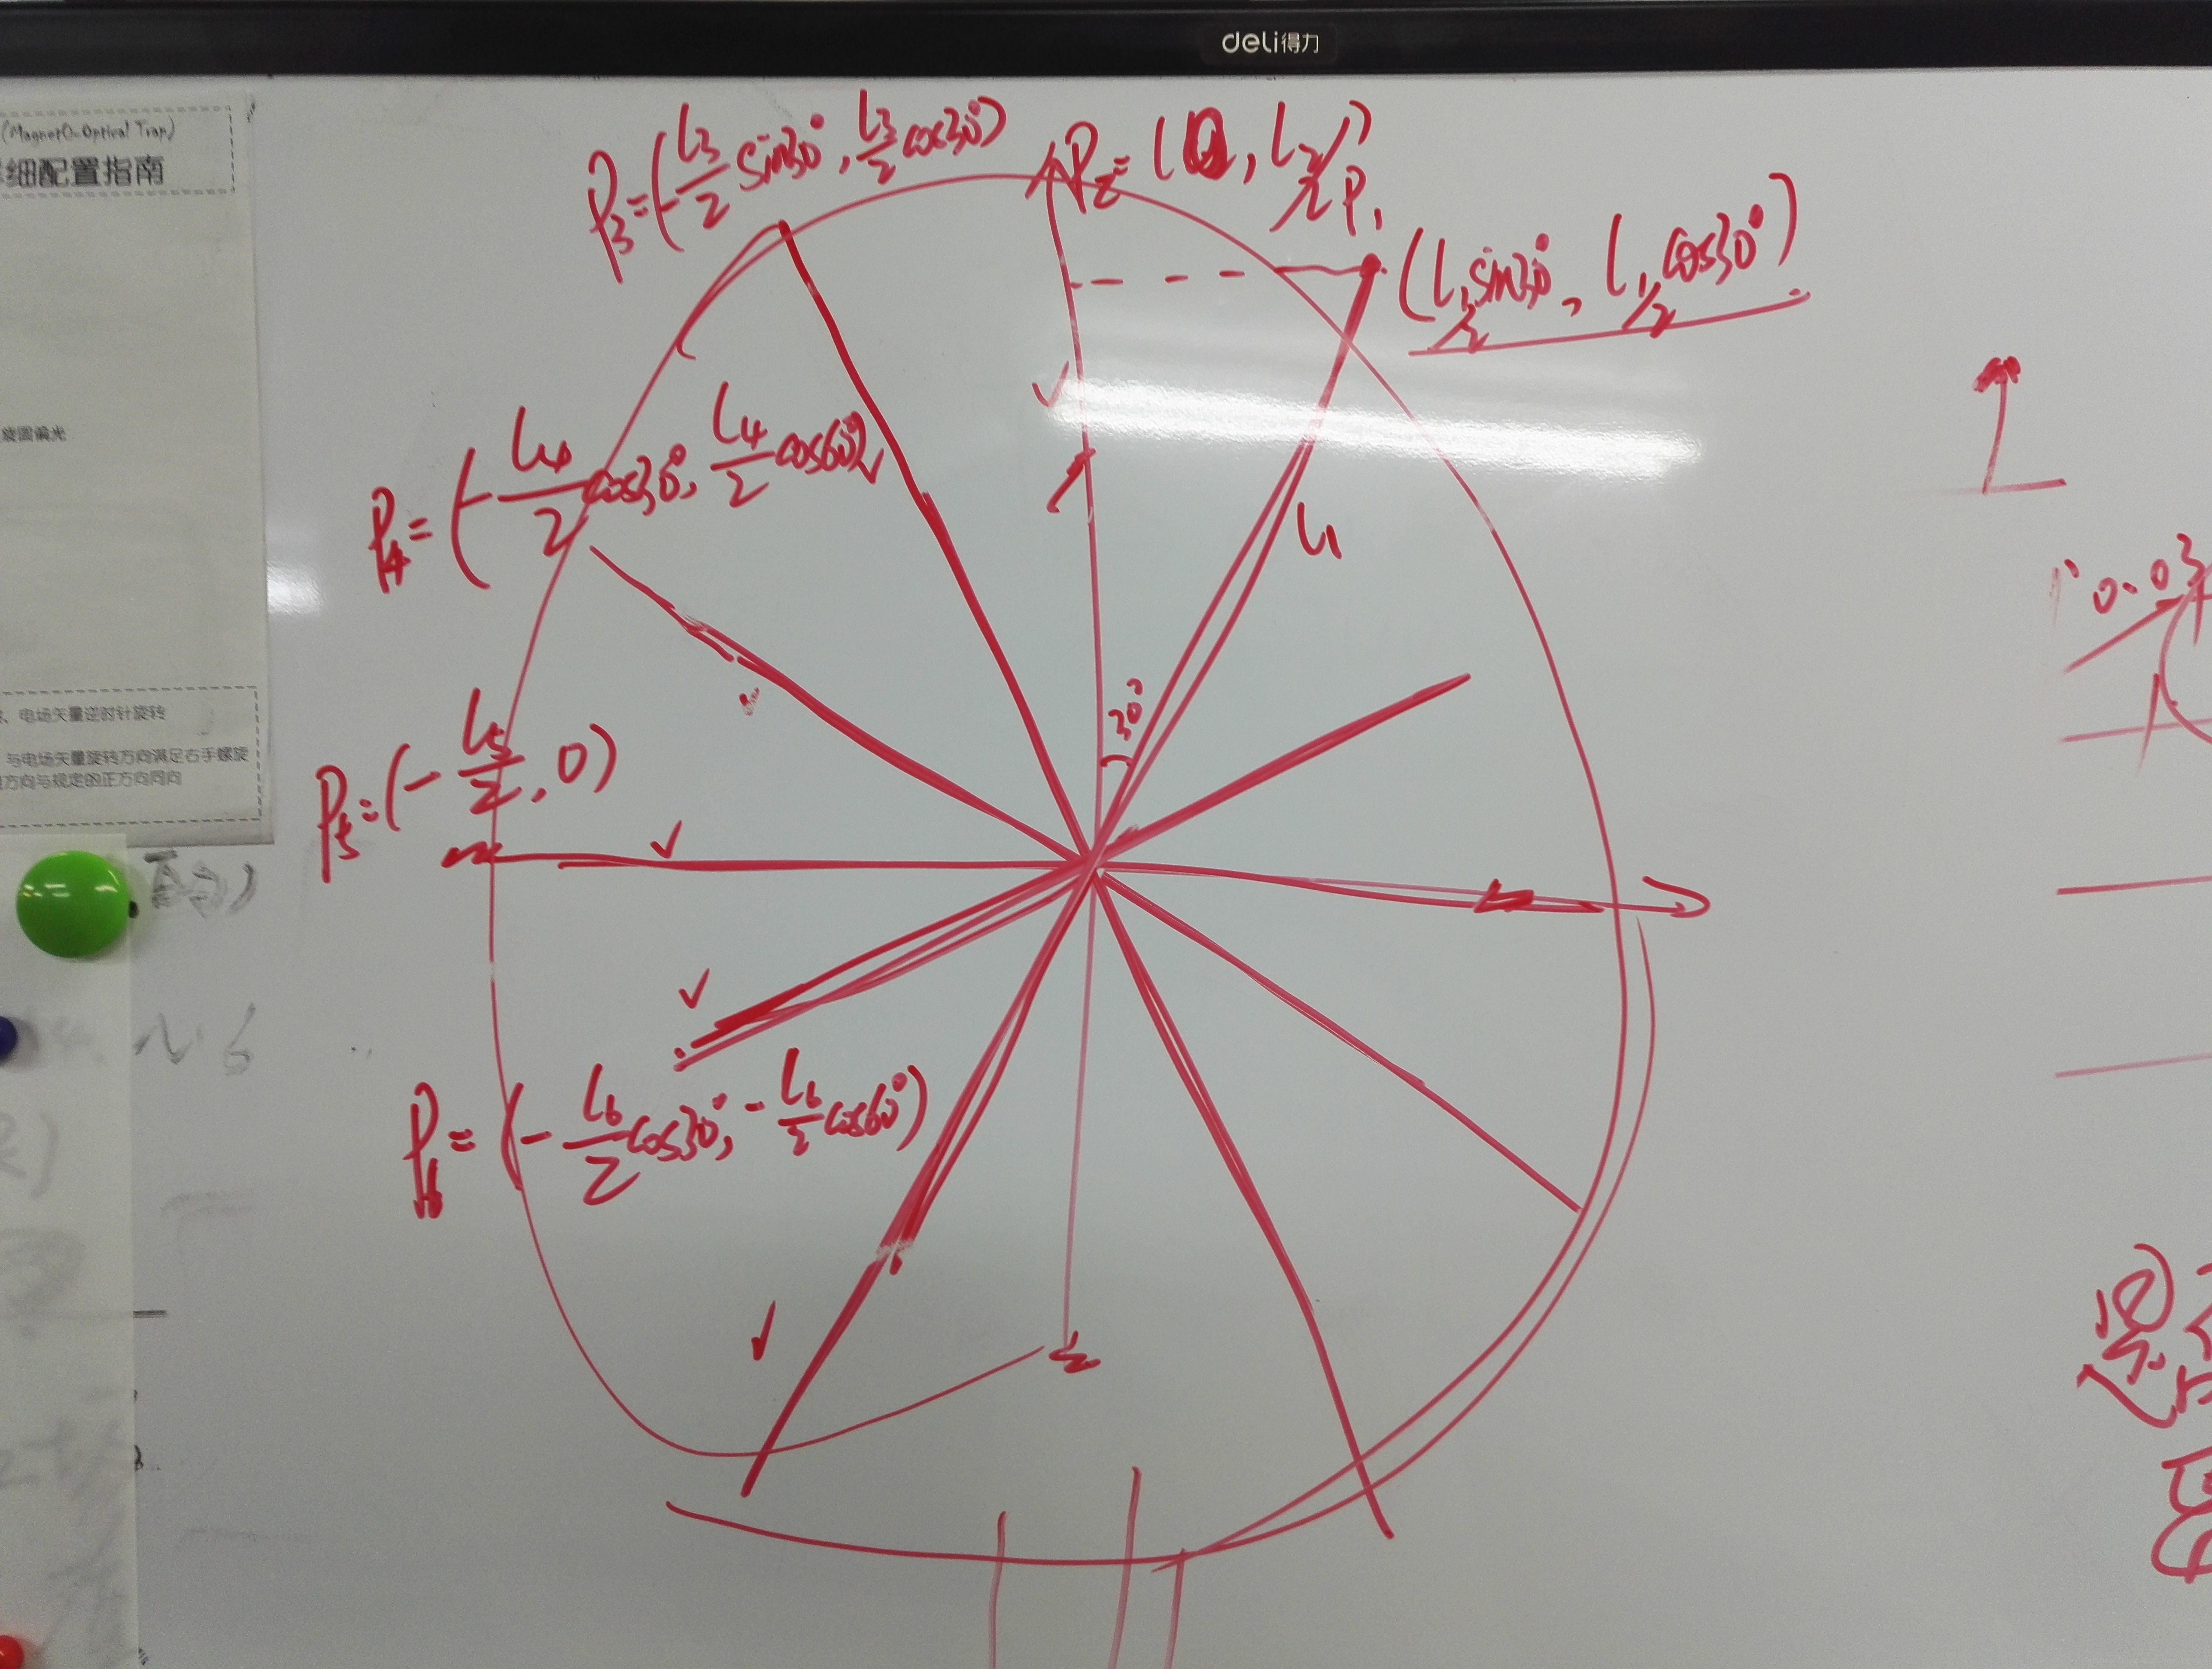 deli得力
(MagnetO-Optical Trap)
细配置指南
旋圆偏光
、电场矢量逆时针旋转
与电场矢量旋转方向满足右手螺旋
方向与规定的正方向同向
P₃=(-L₃/2 sin30°, L₃/2 cos30°)
P₂=(0, L₂/2)
P₁
(L₁/2 sin30°, L₁/2 cos30°)
P₄=(-L₄/2 cos30°, L₄/2 cos60°)
L₁
30°
0.03
P₅=(-L₅/2, 0)
P₆=(-L₆/2 cos30°, -L₆/2 cos60°)